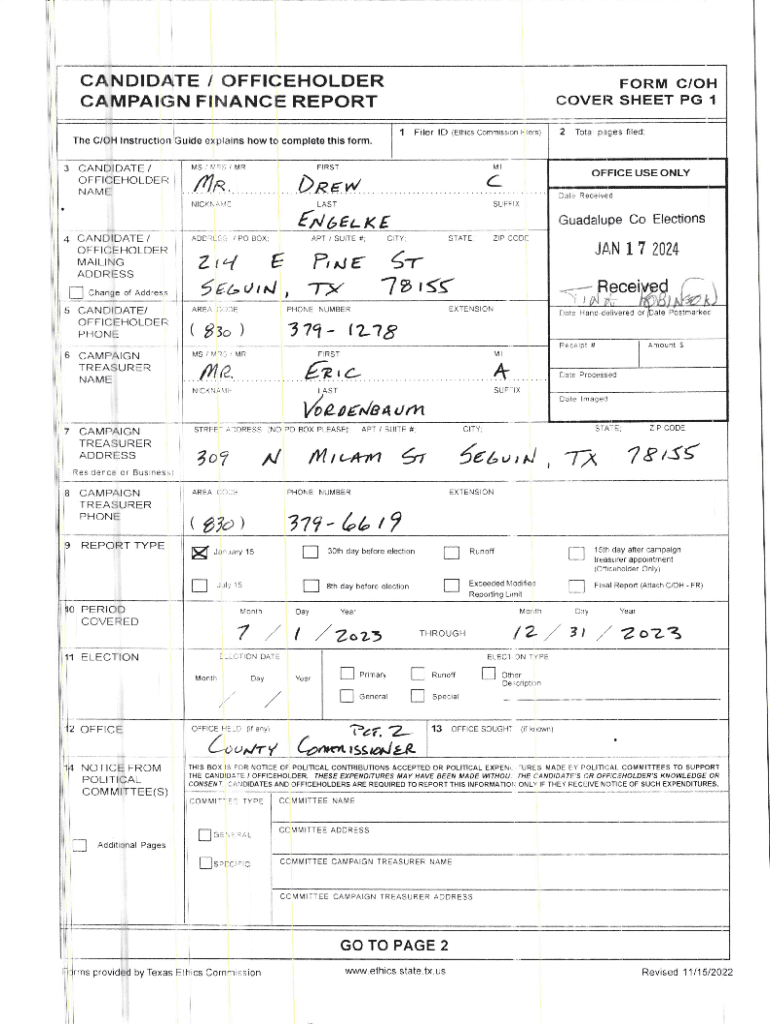 CANDIDATE / OFFICEHOLDER
CAMPAIGN FINANCE REPORT
FORM C/OH
COVER SHEET PG 1
The C/OH Instruction Guide explains how to complete this form.
1 Filer ID (Ethics Commission Filers)
2 Total pages filed:
3 CANDIDATE /
OFFICEHOLDER
NAME
MS / MRS / MR FIRST MI
MR. DREW C
NICKNAME LAST SUFFIX
ENGELKE
OFFICE USE ONLY
Date Received
Guadalupe Co Elections
JAN 17 2024
Received
TINA ROBINSON
Date Hand-delivered or Date Postmarked
Receipt # Amount $
Date Processed
Date Imaged
4 CANDIDATE /
OFFICEHOLDER
MAILING
ADDRESS
Change of Address
ADDRESS / PO BOX; APT / SUITE #; CITY; STATE; ZIP CODE
214 E PINE ST
SEGUIN, TX 78155
5 CANDIDATE/
OFFICEHOLDER
PHONE
AREA CODE PHONE NUMBER EXTENSION
(830) 379-1278
6 CAMPAIGN
TREASURER
NAME
MS / MRS / MR FIRST MI
MR. ERIC A
NICKNAME LAST SUFFIX
VORDENBAUM
7 CAMPAIGN
TREASURER
ADDRESS
(Residence or Business)
STREET ADDRESS (NO PO BOX PLEASE); APT / SUITE #; CITY; STATE; ZIP CODE
309 N MILAM ST SEGUIN, TX 78155
8 CAMPAIGN
TREASURER
PHONE
AREA CODE PHONE NUMBER EXTENSION
(830) 379-6619
9 REPORT TYPE
January 15 30th day before election Runoff 15th day after campaign
treasurer appointment
(Officeholder Only)
July 15 8th day before election Exceeded Modified
Reporting Limit
Final Report (Attach C/OH - FR)
10 PERIOD
COVERED
Month Day Year Month Day Year
7 / 1 / 2023 THROUGH 12 / 31 / 2023
11 ELECTION
ELECTION DATE ELECTION TYPE
Month Day Year
/ /
Primary Runoff Other
Description
General Special
12 OFFICE
OFFICE HELD (if any) PCT. 2
COUNTY COMMISSIONER
13 OFFICE SOUGHT (if known)
14 NOTICE FROM
POLITICAL
COMMITTEE(S)
Additional Pages
THIS BOX IS FOR NOTICE OF POLITICAL CONTRIBUTIONS ACCEPTED OR POLITICAL EXPENDITURES MADE BY POLITICAL COMMITTEES TO SUPPORT
THE CANDIDATE / OFFICEHOLDER. THESE EXPENDITURES MAY HAVE BEEN MADE WITHOUT THE CANDIDATE'S OR OFFICEHOLDER'S KNOWLEDGE OR
CONSENT. CANDIDATES AND OFFICEHOLDERS ARE REQUIRED TO REPORT THIS INFORMATION ONLY IF THEY RECEIVE NOTICE OF SUCH EXPENDITURES.
COMMITTEE TYPE
GENERAL
SPECIFIC
COMMITTEE NAME
COMMITTEE ADDRESS
COMMITTEE CAMPAIGN TREASURER NAME
COMMITTEE CAMPAIGN TREASURER ADDRESS
GO TO PAGE 2
Forms provided by Texas Ethics Commission www.ethics.state.tx.us Revised 11/15/2022